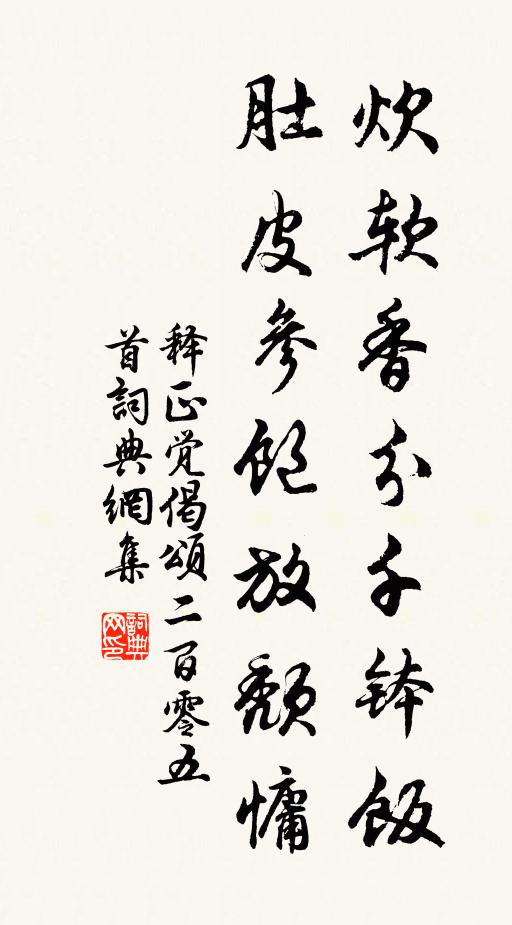 炊软香分千钵飯
肚皮參飽放颓慵
释正觉偈頌二百零五
首詞典網集
詞典网印